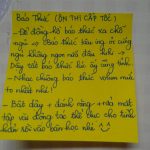 Báo Thức (ÔN THI CẤP TỐC)
- Để đồng hồ báo thức xa chỗ
ngủ → Báo thức kêu inh ỏi cũng
ngủ không ngon nữa đâu hihi →
Dậy tắt báo thức là ấy cũng tỉnh
- Nhạc chuông báo thức volum mức
to nhất nhé!
- Bật dậy + đánh răng + rửa mặt
tập vài động tác thể dục cho tỉnh
rồi vào bàn học nhé